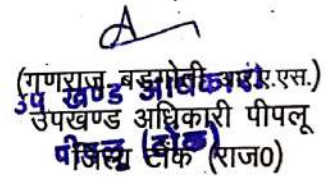 (गणराज बड़गोती आर.ए.एस.)
उप खण्ड अधिकारी
उपखण्ड अधिकारी पीपलू
पीपलू (टोंक)
जिला टोंक (राज0)